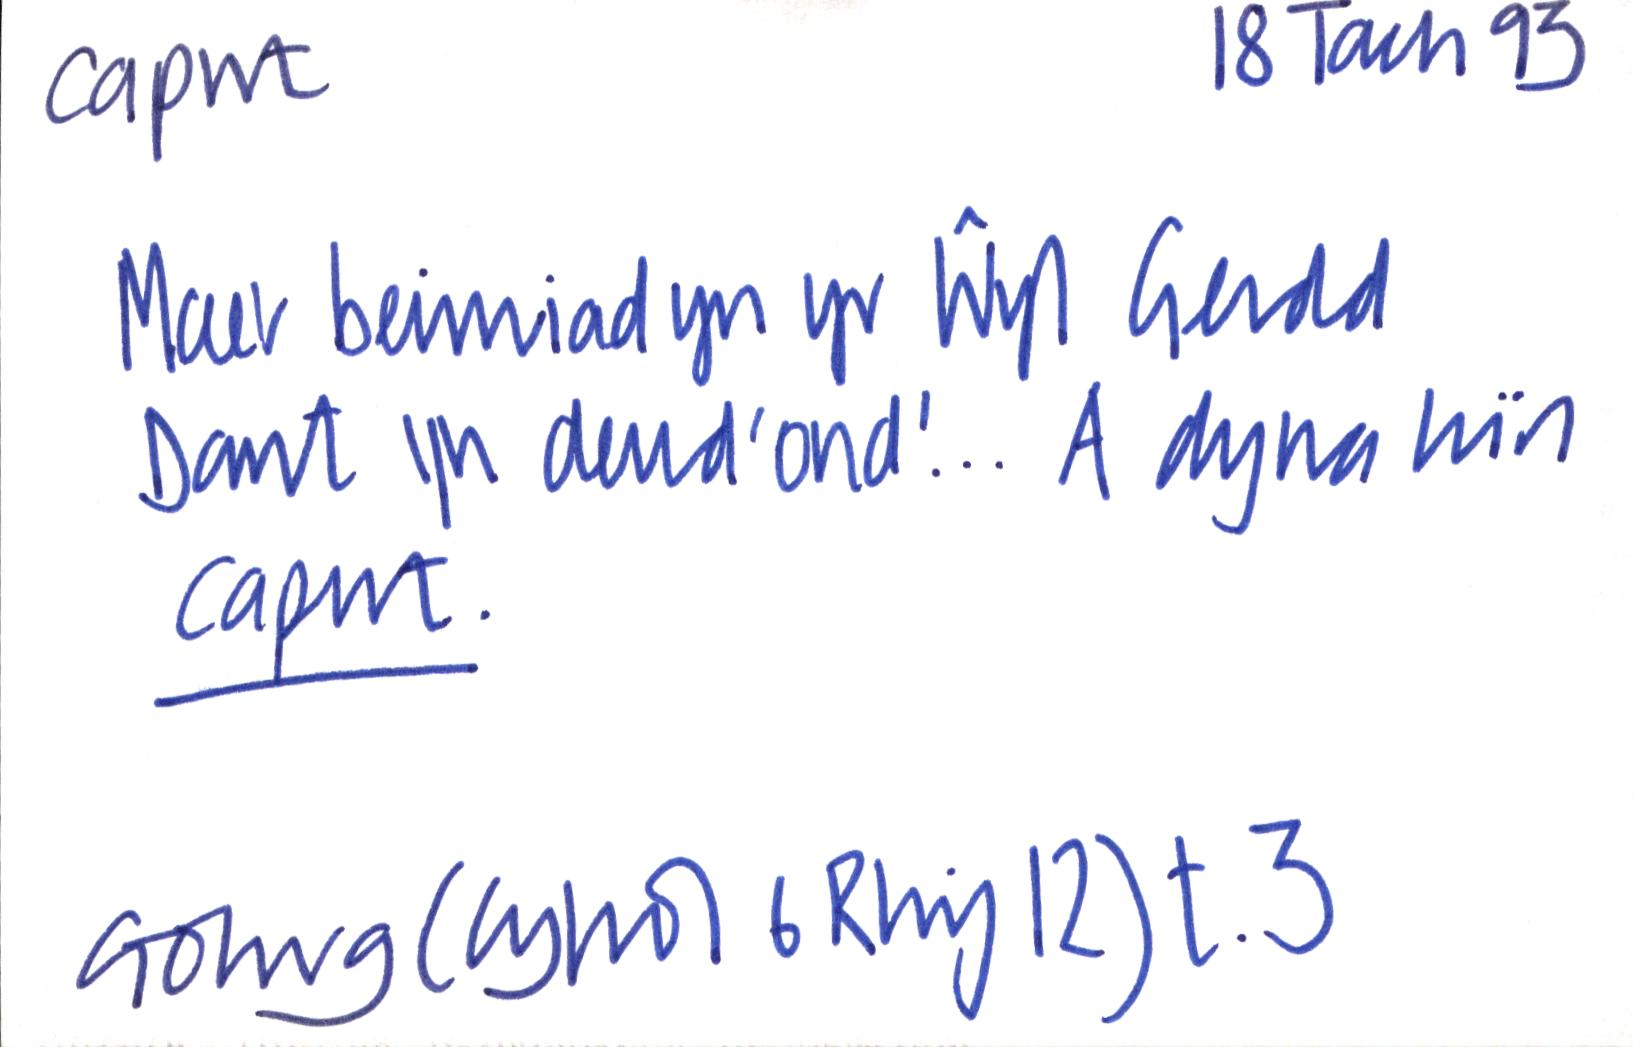 capwt
18 Tach 93
Maer beirniad yn yr Ŵyl Gerdd
Dant yn deud 'ond'!... A dyna hi'n
capwt.
Golwg (Cyfrol 6 Rhif 12) t.3